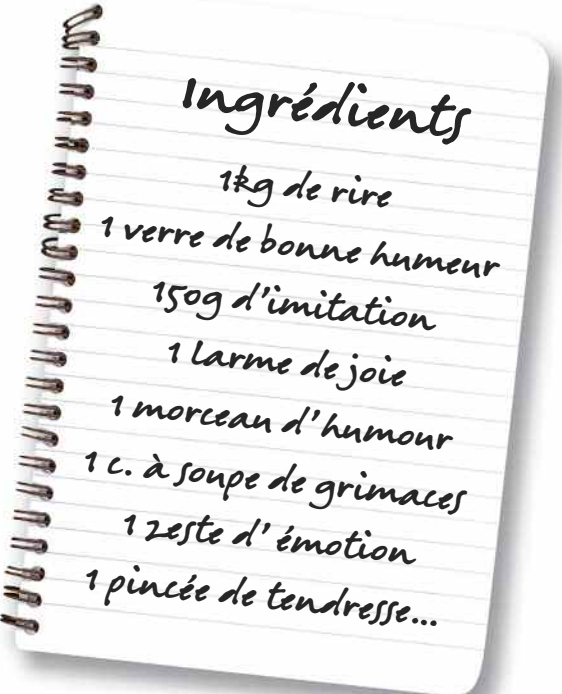 Ingrédients
1kg de rire
1 verre de bonne humeur
150g d'imitation
1 larme de joie
1 morceau d'humour
1 c. à soupe de grimaces
1 zeste d' émotion
1 pincée de tendresse...